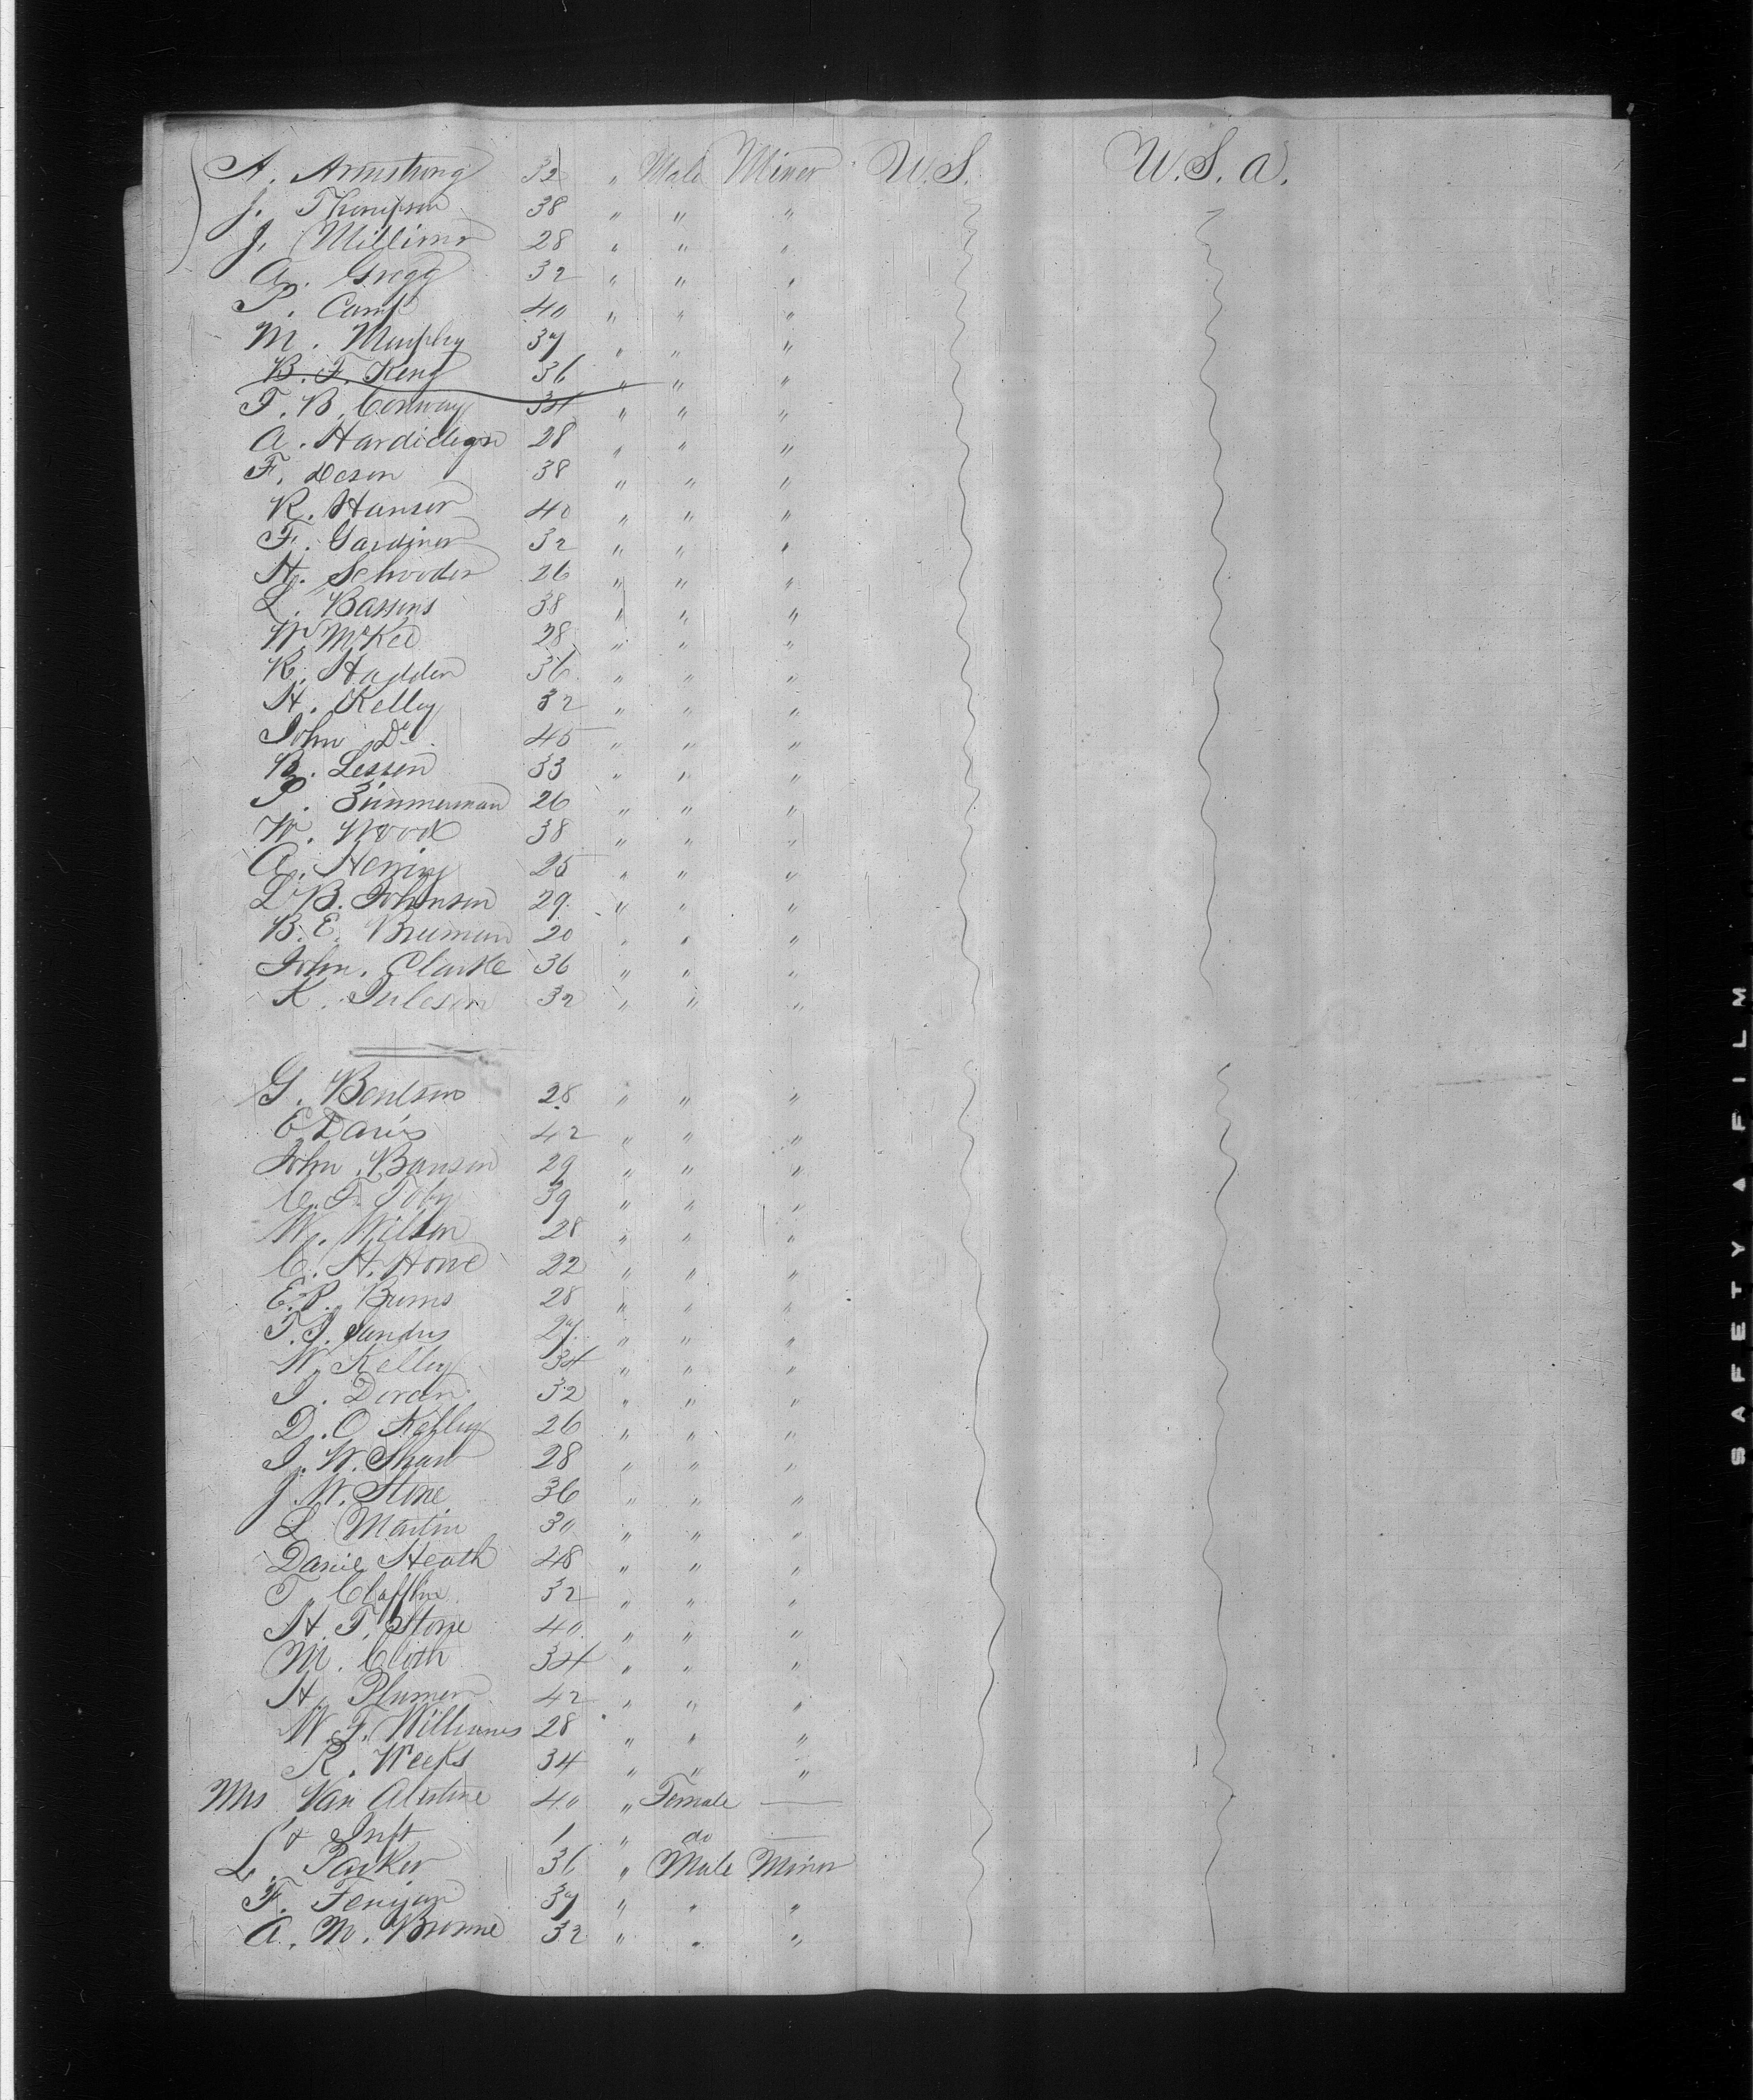 A. Armstrong 32 " Male Miner U.S. U.S.a.
J. Thompson 38 " " "
J. Millimor 28 " " "
A. Gregg 32 " " "
P. Camp 40 " " "
M. Murphy 37 " " "
B. F. King 36 " " "
F. B. Conway 34 " " "
A. 28 " " "
F. 38 " " "
R. Hanson 40 " " "
F. Gardiner 32 " " "
H. Schroder 26 " " "
L. Bassens 38 " " "
W. McKee 28 " " "
R. Hadden 36 " " "
H. Kelley 32 " " "
John Do 45 " " "
B. Lessen 33 " " "
P. Zimmerman 26 " " "
W. Wood 38 " " "
A. Herring 25 " " "
L. B. Johnson 29 " " "
B. E. 20 " " "
John. Clarke 36 " " "
K. 32 " " "
G. 28 " " "
E. Davis 42 " " "
John. Banson 29 " " "
C. F. Toby 39 " " "
W. Wilson 28 " " "
C. H. Howe 22 " " "
E. P. Burns 28 " " "
T. J. Sanders 27 " " "
W. Kelley 34 " " "
J. Doran 32 " " "
D. O Kelley 26 " " "
J. W. Shaw 28 " " "
J. W. Stone 36 " " "
L Martin 30 " " "
Daniel Heath 48 " " "
T. Clafflin 32 " " "
H. T. Stone 40 " " "
M. Cloth 34 " " "
H. Plumer 42 " " "
W. F. Williams 28 " " "
R. Weeks 34 " " "
Mrs Van Alstine 40 " Female —
" & Inft 1 " do —
L. Parker 36 " Male Miner
F. Fenyan 37 " " "
A. M. Browne 32 " " "
SAFETY A FILM